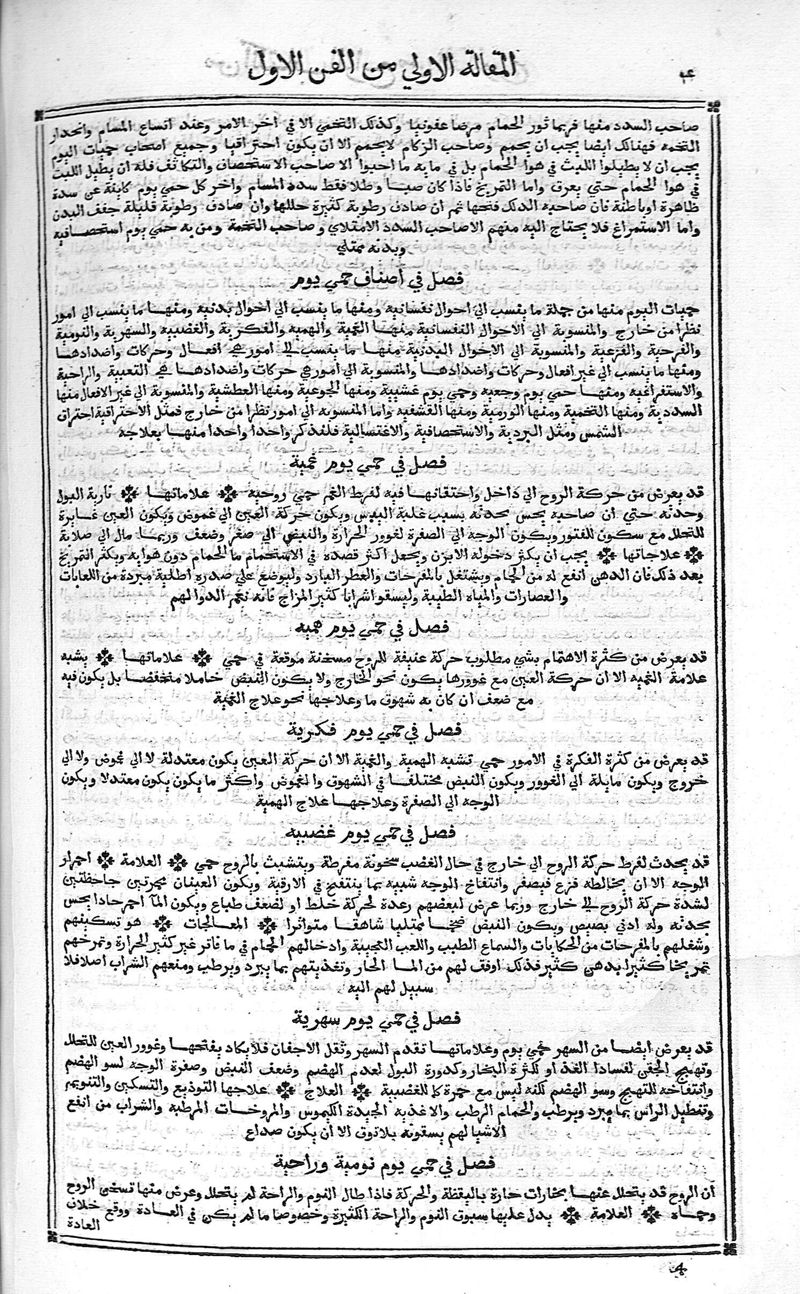 المقالة الاولي من الفن الاول
٤
صاحب السدد منها فربما ثور الحمام مرضا عفونيا وكذلك التخمي الا في اخر الامر وعند اتساع المسام وانحدار
التخمة فهنالك ايضا يجب ان يحمم وصاحب الزكام لا يحمم الا ان يكون احتراقيا وجميع اصحاب حميات اليوم
يجب ان لا يطيلوا اللبث في هوا الحمام بل في مايه ما احبوا الا صاحب الاستحصاف والتكاثف فله ان يطيل اللبث
في هوا الحمام حتي يعرق واما التمريخ فاذا كان صبا وطلا فقط سدد المسام واخر كل حمي يوم كاينة عن سدة
ظاهرة او باطنة فان صاحبه الدلك فتحها ثم ان صادف رطوبة كثيرة حللها وان صادف رطوبة قليلة جفف البدن
واما الاستفراغ فلا يحتاج اليه منهم الا صاحب السدد الامتلاي وصاحب التخمة ومن به حمي يوم استحصافية
وبدنه ممتلي
فصل في اصناف حمي يوم
حميات اليوم منها من جملة ما ينسب الي احوال نفسانية ومنها ما ينسب الي احوال بدنية ومنها ما ينسب الي امور
تطرا من خارج والمنسوبة الي الاحوال النفسانية منها الغمية والهمية والفكرية والغضبية والسهرية والنومية
والفرحية والفزعية والمنسوبة الي الاحوال البدنية منها ما ينسب الي امور هي افعال وحركات واضدادها
ومنها ما ينسب الي غير افعال وحركات واضدادها والمنسوبة الي امور هي حركات واضدادها هي التعبية والراحية
والاستفراغية ومنها حمي يوم وجعية وحمي يوم غشيية ومنها الجوعية ومنها العطشية والمنسوبة الي غير الافعال منها
السددية ومنها التخمية ومنها الورمية ومنها القشفية واما المنسوبة الي امور تطرا من خارج فمثل الاحتراقية احتراق
الشمس ومثل البردية والاستحصافية والاغتسالية فلنذكر واحدا واحدا منها بعلاجه
فصل في حمي يوم غمية
قد يعرض من حركة الروح الي داخل واحتقانها فيه لفرط الغم حمي روحية علاماتها نارية البول
وحدته حتي ان صاحبه يحس بحدته بسبب غلبة اليبس ويكون حركة العين الي غموض ويكون العين غايرة
للتحلل مع سكون للفتور ويكون الوجه الي الصفرة لغوور الحرارة والنبض الي صغر وضعف وربما مال الي صلابة
علاجاتها يجب ان يكثر دخوله الابزن ويجعل اكثر قصده في الاستحمام ما الحمام دون هوايه ويكثر التمريخ
بعد ذلك فان الدهن انفع له من الحمام ويشتغل بالمفرحات والعطر البارد وليوضع علي صدره اطلية مبردة من اللعابات
والعصارات والمياه الطيبة وليسقوا شرابا كثير المزاج فانه نعم الدوا لهم
فصل في حمي يوم همية
قد يعرض من كثرة الاهتمام بشي مطلوب حركة عنيفة للروح مسخنة موقعة في حمي علاماتها يشبه
علامة الغمية الا ان حركة العين مع غوورها يكون نحو الخارج ولا يكون النبض خاملا منخفضا بل يكون فيه
مع ضعف ان كان به شهوق ما وعلاجها نحو علاج الغمية
فصل في حمي يوم فكرية
قد يعرض من كثرة الفكرة في الامور حمي تشبه الهمية والغمية الا ان حركة العين يكون معتدلة لا الي غموض ولا الي
خروج ويكون مايلة الي الغوور ويكون النبض مختلفا في الشهوق والغموض واكثر ما يكون يكون معتدلا ويكون
الوجه الي الصفرة وعلاجها علاج الهمية
فصل في حمي يوم غضبية
قد يحدث لفرط حركة الروح الي خارج في حال الغضب سخونة مفرطة ويتشبث بالروح حمي العلامة احمرار
الوجه الا ان يخالطه فزع فيصفر وانتفاخ الوجه شبيه بما ينتفخ في الارقية ويكون العينان محمرتين جاحظتين
لشدة حركة الروح الي خارج وربما عرض لبعضهم رعدة لحركة خلط او لضعف طباع ويكون الما احمر حادا يحس
بحدته وله ادني بصيص ويكون النبض ضخما ممتليا شاهقا متواترا المعالجات هو تسكينهم
وشغلهم بالمفرحات من الحكايات والسماع الطيب واللعب العجيبة وادخالهم الحمام في ما فاتر غير كثير الحرارة وتمريخهم
تمريخا كثيرا بدهن كثير فذلك اوفق لهم من الما الحار وتغذيتهم بما يبرد ويرطب ومنعهم الشراب اصلا فلا
سبيل لهم اليه
فصل في حمي يوم سهرية
قد يعرض ايضا من السهر حمي يوم وعلاماتها تقدم السهر وثقل الاجفان فلا يكاد يفتحها وغوور العين للتحلل
وتهيج الجفن لفساد الغذ او لكثرة البخار وكدورة البول لعدم الهضم وضعف النبض وصفرة الوجه لسو الهضم
وانتفاخه للتهيج وسو الهضم لكنه ليس مع حمرة كما للغضبية العلاج علاجها التوديع والتسكين والتنويم
وتغطيل الراس بما يبرد ويرطب والحمام الرطب والاغذية الجيدة الكيموس والمروخات المرطبة والشراب من انفع
الاشيا لهم يسقونه بلا توق الا ان يكون صداع
فصل في حمي يوم نومية وراحية
ان الروح قد يتحلل عنها بخارات حارة باليقظة والحركة فاذا طال النوم والراحة لم يتحلل وعرض منها تسخن الروح
وحماه العلامة يدل عليها سبوق النوم والراحة الكثيرة وخصوصا ما لم يكن في العادة ووقع خلاف
العادة